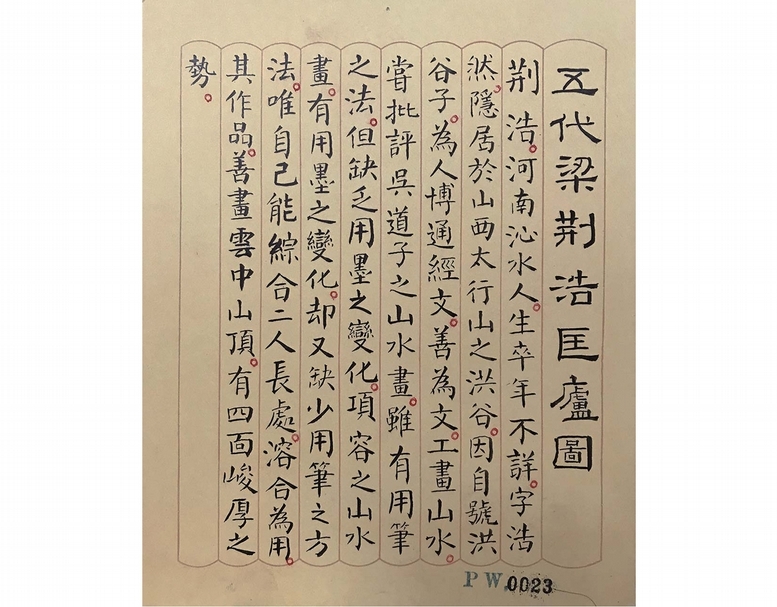 五代梁荆浩匡廬圖
荆浩。河南沁水人。生卒年不詳。字浩
然。隱居於山西太行山之洪谷。因自號洪
谷子。為人博通經文。善為文。工畫山水。
嘗批評吳道子之山水畫。雖有用筆
之法。但缺乏用墨之變化。項容之山水
畫。有用墨之變化。却又缺少用筆之方
法。唯自己能綜合二人長處。溶合為用。
其作品。善畫雲中山頂。有四面峻厚之
勢。
PW.0023